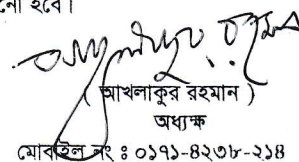 নো হবে।
( আখলাকুর রহমান )
অধ্যক্ষ
মোবাইল নং ঃ ০১৭১-৪২৩৮-২১৪